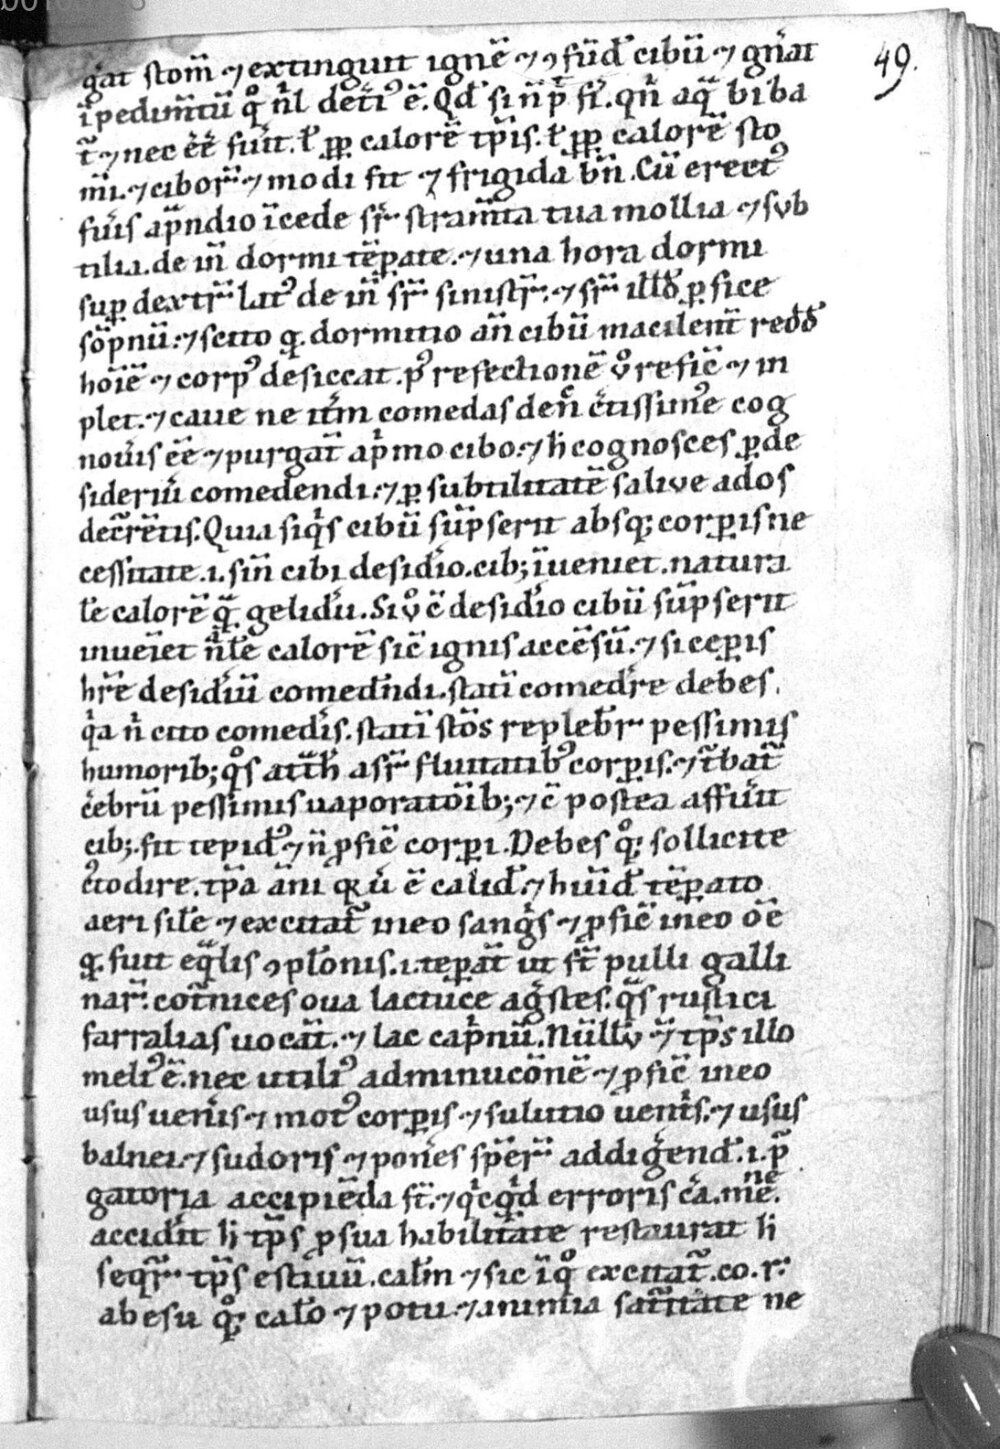 49.
gͣat stom̄ ⁊ extinguit ignē ⁊ ꝯfūd̄ cibū ⁊ gn̄at
īpedim̄tū qͦ nͥl det̄iꝰ ē. Qd̄ si n̄ p̄t fi. qn̄ aqͣ biba
t̄ ⁊ nec ēē fūit. ł ꝓp calorē tp̄is. ł ꝓp calorē sto
m̄i. ⁊ ciboꝝ ⁊ modi fit ⁊ frigida bn̄. Cū erectꝰ
fūis ap̄ndio īcede sr̄ stram̄ta tua mollia ⁊ sub
tilia. de in̄ dormi tēꝑate. ⁊ una hora dormi
suꝑ dextr̄ latꝰ de in̄ sr̄ sinistr̄. ⁊ sr̄ illđ ꝑfice
sōpnū: ⁊ scito ꝙ dormitio an̄ cibū macilent̄ redđ
hoīēm ⁊ corpꝰ desiccat. pꝰ refectionē vͦ reficͫ ⁊ in
plet. ⁊ caue ne itͫm comedas den̄ c̄tissimꝰe cog
nou̇is ēē ⁊ purgat̄ apͥmo cibo. ⁊ h̄ cognosces ꝑ de
sideriū comedendi. ⁊ ꝑ subtilitatē saliue ad os
decr̄ētis. Quia siqͥs cibū sūpserit absqꝫ corꝑis ne
cessitate .i. sin̄ cibi desidͥo. cibꝫ īueniet. natura
lē calorē qͣ gelidū. Si vͦ c̄ desidͥo cibū sūpserit
inuēiet nͣlē calorē sic̄ ignis accēsū. ⁊ si ceꝑis
hr̄e desidͥiū comedn̄di. statī comedr̄e debes.
qͥa nͥ cito comedͥs. statī stōs replebr̄ pessimis
humoribꝫ qͦs att̄h̄ a sr̄ fluitatibꝰ corꝑis. ⁊ t̄bat̄
c̄ebrū pessimis uaporatōibꝫ ⁊ c̄ postea affūit
cibꝫ. fit tepidꝰ ⁊ n̄ ꝓficͫ corꝑi. Debes qͦꝫ sollicite
cꝰtodire. tp̄a āni ꝙ ū ē calid̄. ⁊ hūid̄ tēꝑato
aeri silē ⁊ excitat̄ in eo sangͥs ⁊ ꝓficͫ in eo oē
ꝙ fuit eqͣlis ꝯplōnis. i. teꝑat̄ ut st̄ pulli galli
nar̄. cot̄nices oua lactuce agͣstes. qͣs rustici
farralias uocāt. ⁊ lac capͥnū. Nūllū ⁊ tp̄s illo
meliꝰ ē. nec utiliꝰ ad minucōnē ⁊ ꝓficͫ in eo
usus uenͥis ⁊ motꝰ corꝑis ⁊ solutio uentͥs. ⁊ usus
balnei. ⁊ sudoris ⁊ ponͥes sꝑer̄ ad digͥend̄. i. p̄
gatoria accipiēda st̄. ⁊ qͥcqͥd erroris cā. mēne.
accidͥit h̄ tp̄s ꝓ sua habilitate restaurat h̄
seqr̄ tp̄s estiuū. calin̄ ⁊ sic̄ ī qͦ excitat̄. co. r̄:
ab esu qͦꝫ calͦo ⁊ potu. ⁊ animia sat̄itate ne